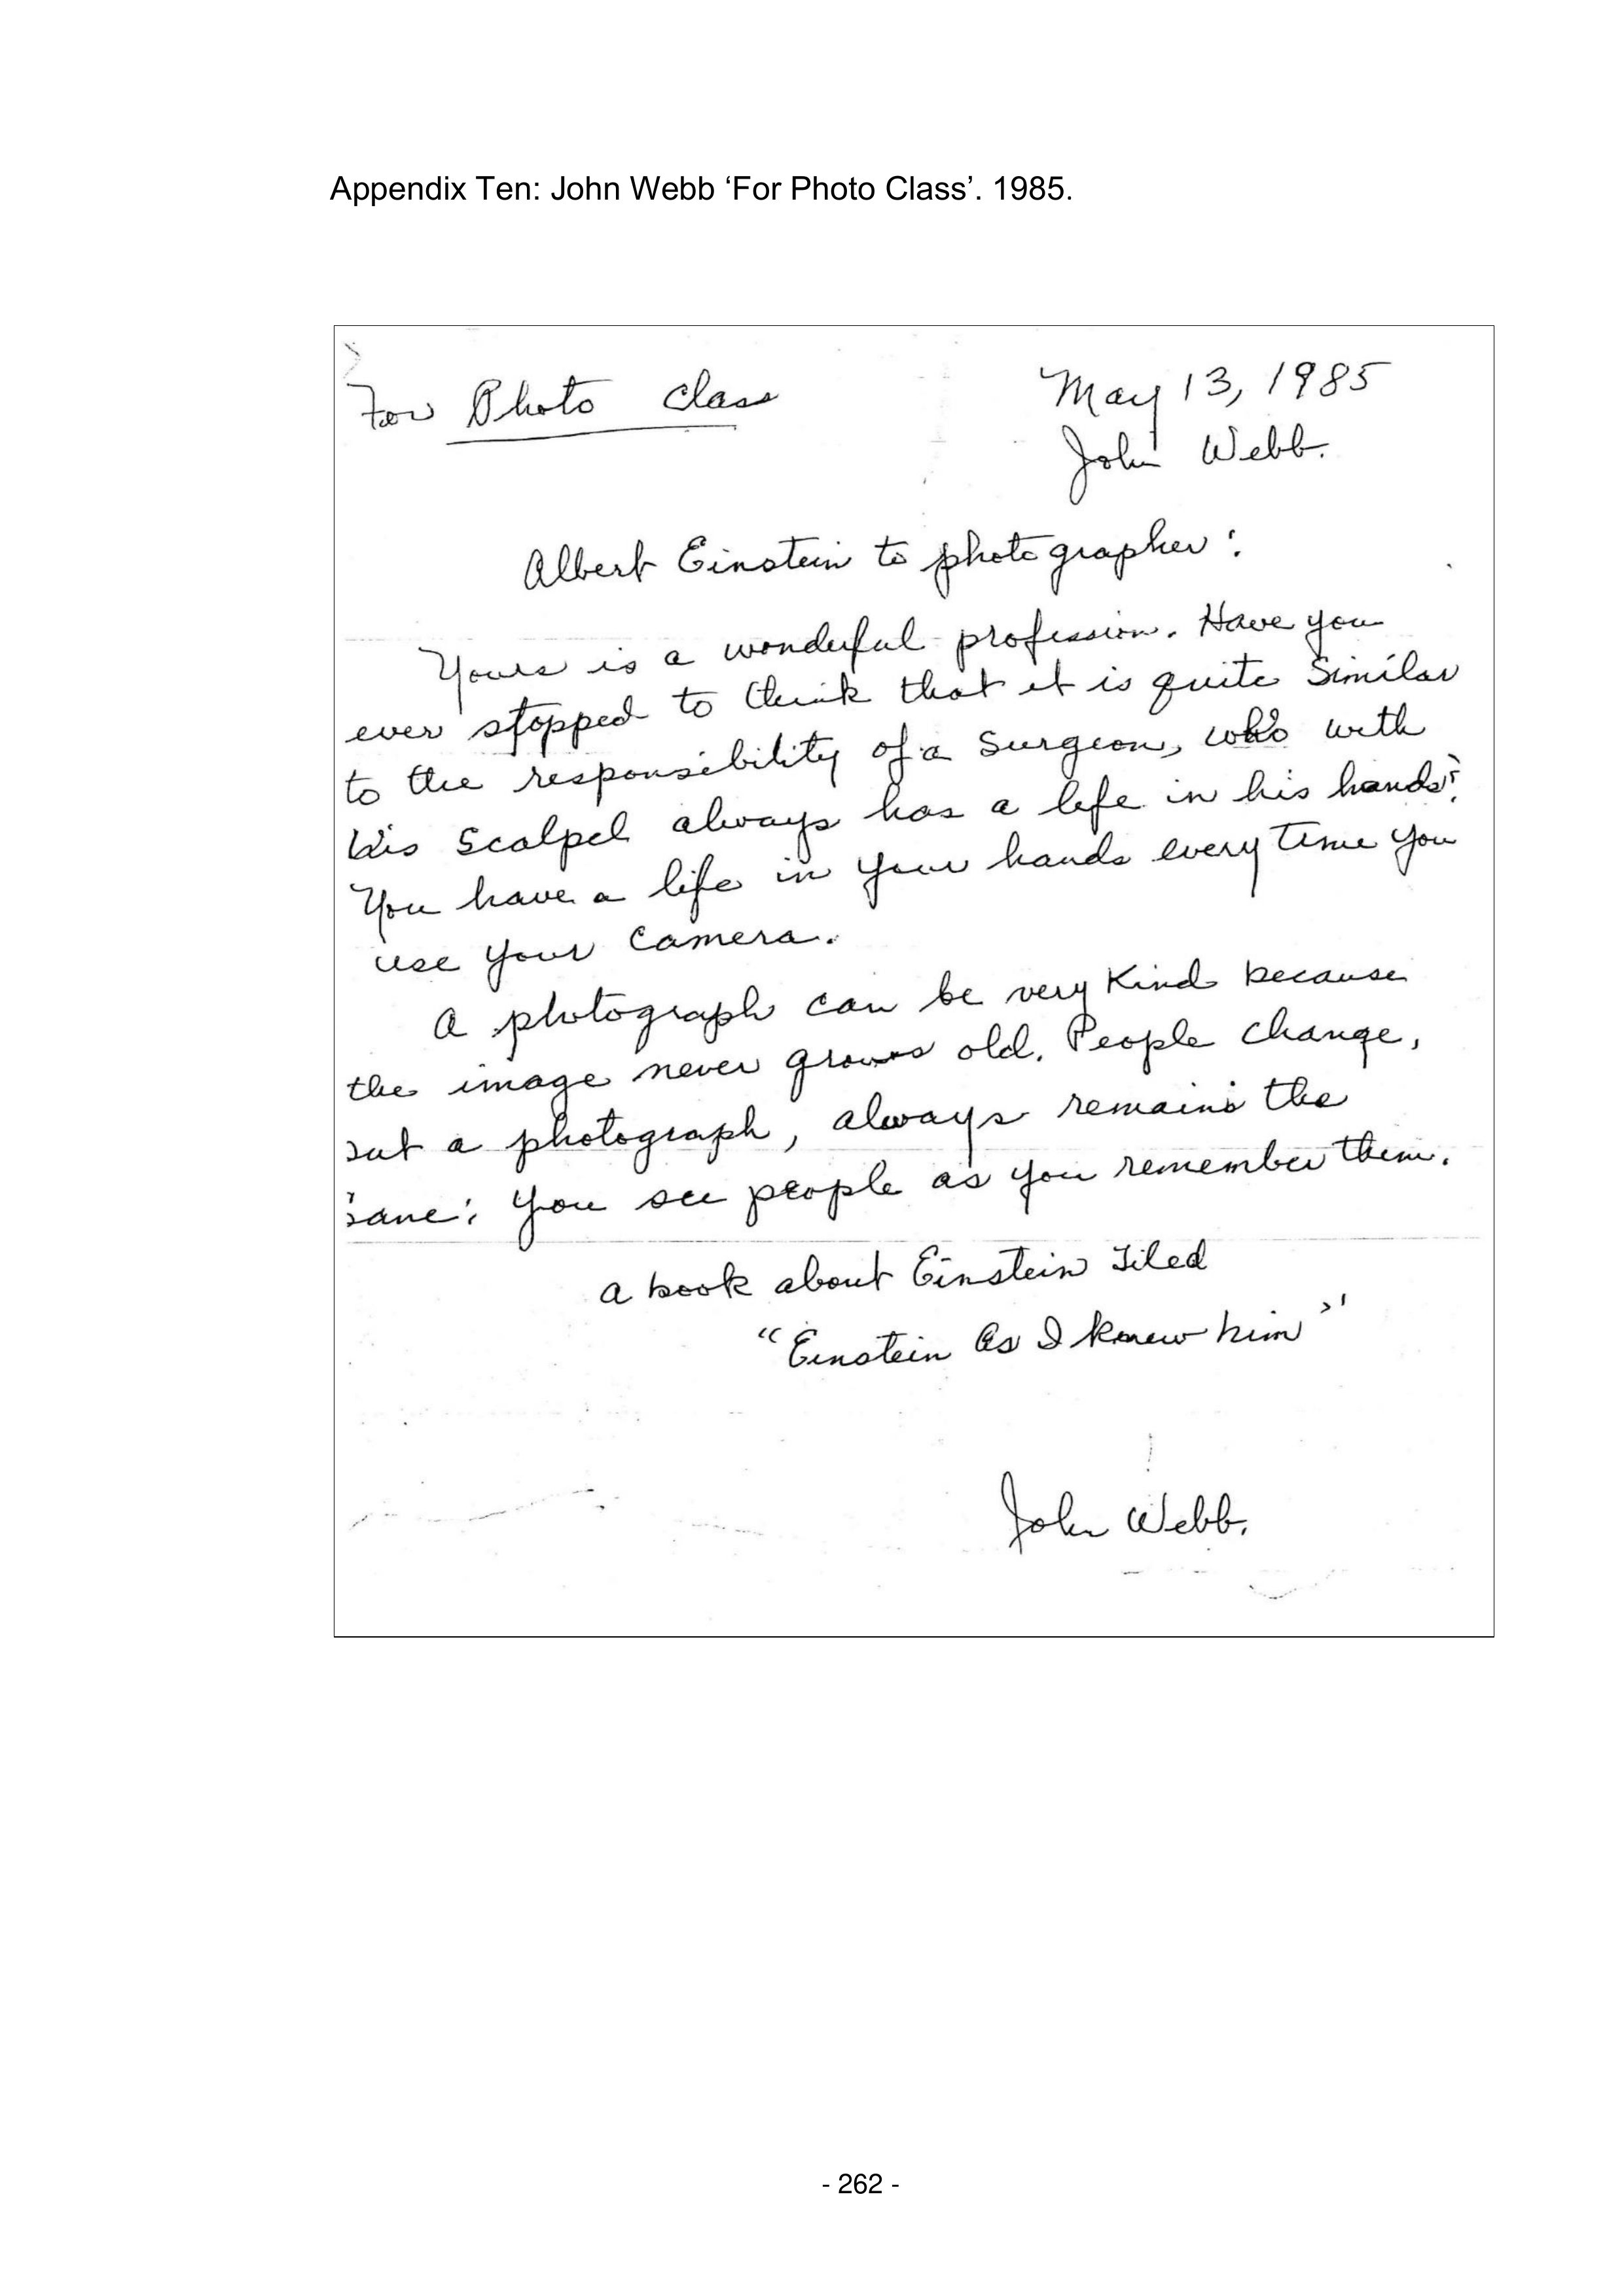 Appendix Ten: John Webb ‘For Photo Class’. 1985.
For Photo Class
May 13, 1985
John Webb.
Albert Einstein to photographer:
Yours is a wonderful profession. Have you
ever stopped to think that it is quite similar
to the responsibility of a surgeon, who with
his scalpel always has a life in his hands?
You have a life in your hands every time you
use your camera.
A photograph can be very kind because
the image never grows old. People change,
but a photograph, always remains the
same; You see people as you remember them.
a book about Einstein Tiled
“Einstein As I knew him”
John Webb.
- 262 -